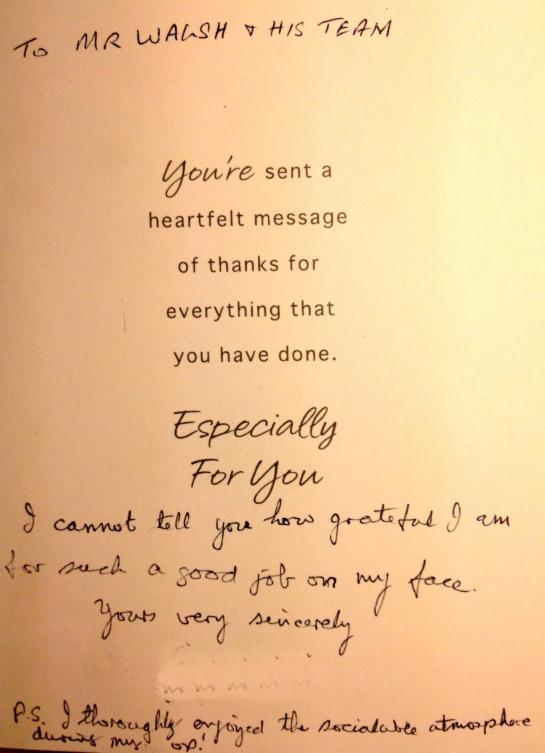 To MR WALSH & HIS TEAM
You're sent a
heartfelt message
of thanks for
everything that
you have done.
Especially
For You
I cannot tell you how grateful I am
for such a good job on my face.
Yours very sincerely
P.S. I thoroughly enjoyed the socialable atmosphere
during my op!